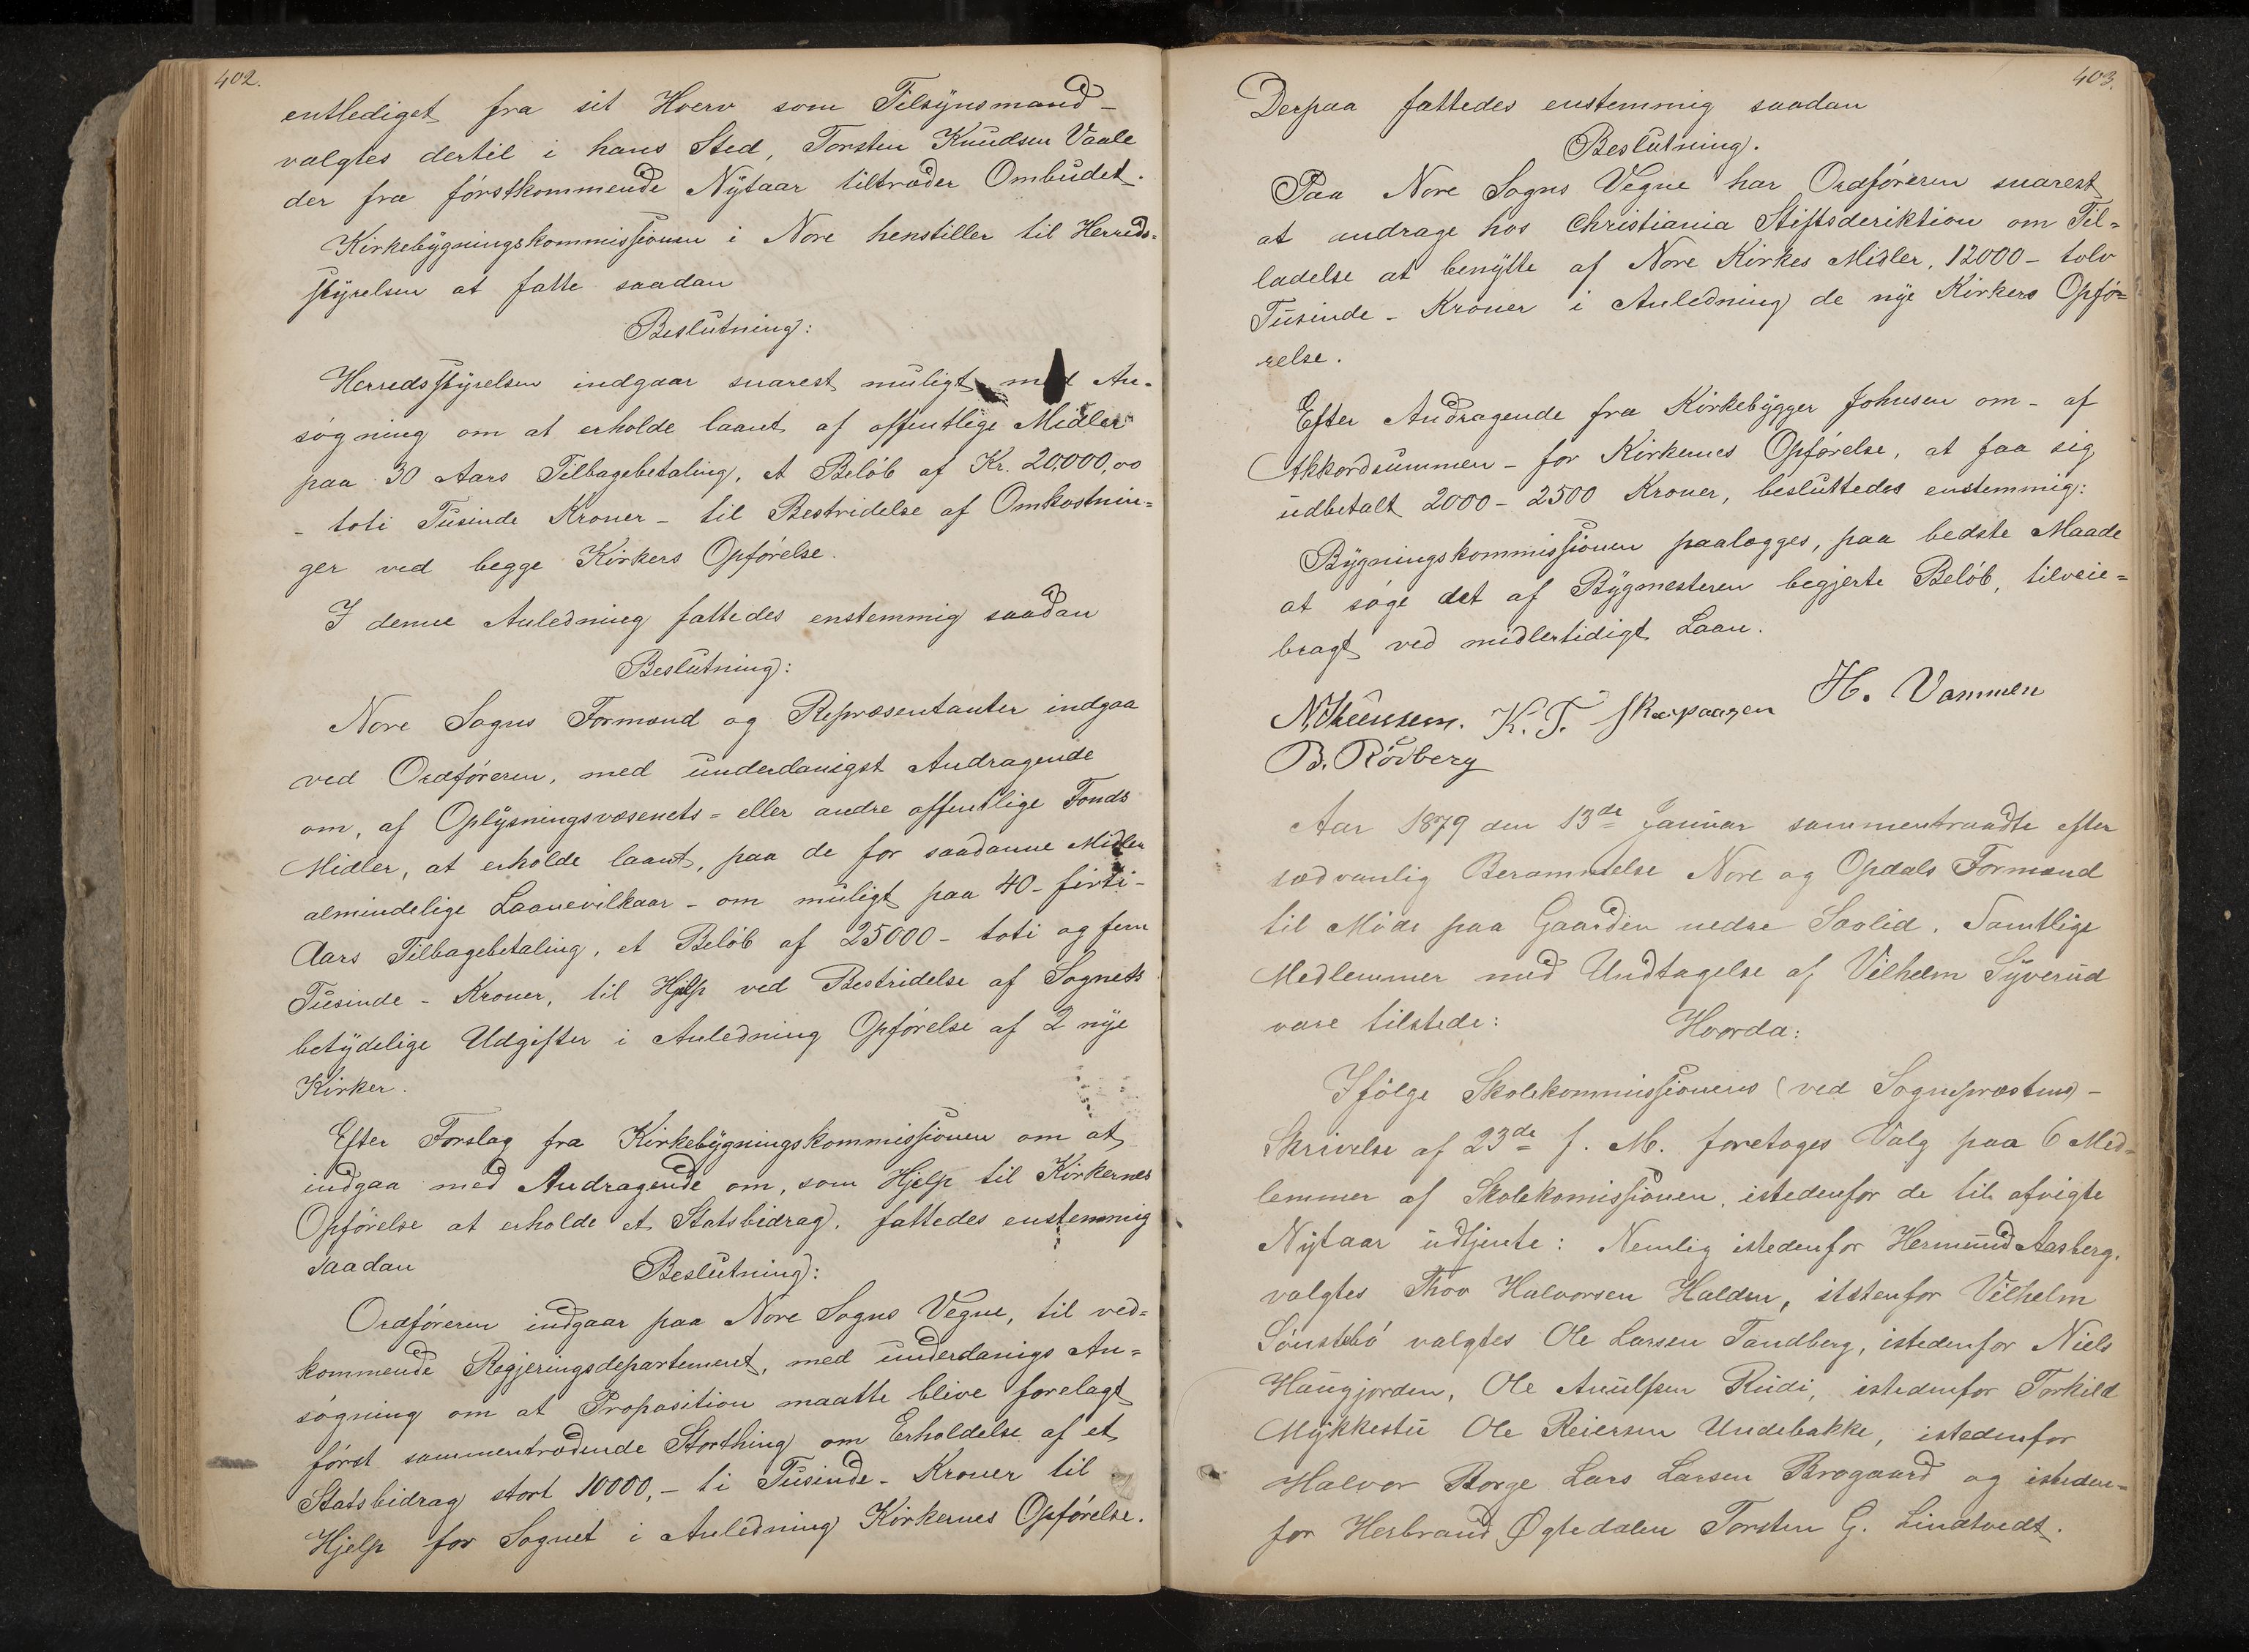 402.
entlediget fra sit Hverv som Tilsynsmand -
valgtes dertil i hans Sted, Torsten Knudsen Vaale
der fra förstkommende Nytaar tiltræder Ombudet.
Kirkebygningskommissionen i Nore henstiller til Herreds=
styrelsen at fatte saadan
Beslutning:
Herredsstyrelsen indgaar snarest muligt med An-
søgning om at erholde laant af offentlige Midler
paa 30 Aars Tilbagebetaling, et Beløb af Kr. 20,000,00
- toti Tusinde Kroner - til Bestridelse af Omkostnin=
ger ved begge Kirkers Opførelse.
I denne Anledning fattedes enstemmig saadan
Beslutning:
Nore Sogns Formænd og Repræsentanter indgaa
ved Ordføreren, med underdanigst Andragende
om, af Oplysningsvæsenets= eller andre offentlige Fonds
Midler, at erholde laant, paa de for saadanne Midler
almindelige Laanevilkaar - om muligt paa 40 - firti -
Aars Tilbagebetaling, et Beløb af 25000 - toti og fem
Tusinde - Kroner, til Hjelp ved Bestridelse af Sognets
betydelige Udgifter i Anledning Opførelse af 2 nye
Kirker.
Efter Forslag fra Kirkebygningskommissionen om at
indgaa med Andragende om, som Hjelp til Kirkernes
Opførelse at erholde et Statsbidrag, fattedes enstemmig
saadan Beslutning:
Ordføreren indgaar paa Nore Sogns Vegne, til ved=
kommende Regjeringsdepartement, med underdanigs An=
søgning om at Proposition maatte blive forelagt
først sammentrædende Storthing om Erholdelse af et
Statsbidrag stort 10000,- ti Tusinde - Kroner til
Hjelp for Sognet i Anledning Kirkernes Opførelse.
403.
Derpaa fattedes enstemmig saadan
Beslutning.
Paa Nore Sogns Vegne har Ordføreren snarest
at andrage hos Christiania Stiftsderiktion om Til=
ladelse at benytte af Nore Kirkes Midler, 12000 - tolv
Tusinde - Kroner i Anledning de nye Kirkers Opfø=
relse.
Efter Andragende fra Kirkebygger Johnsen om - af
Akkordsummen - for Kirkernes Opførelse, at faa sig
udbetalt 2000 - 2500 Kroner, besluttedes enstemmig:
Bygningskommissionen paalægges, paa bedste Maade
at søge det af Bygmesteren begjerte Beløb, tilveie=
bragt ved midlertidigt Laan.
K. T. H. Vammen
B. Rødberg
Aar 1879 den 13de Januar sammentraadte efter
sædvanlig Berammelse Nore og Opdals Formænd
til Møde paa Gaarden nedre Søvlid. Samtlige
Medlemmer med Undtagelse af Vilhelm Syverud
vare tilstede: Hvorda:
Ifølge Skolekommissionens (ved Sognepræstens) -
Skrivelse af 23de f. M. foretoges Valg paa 6 Med=
lemmer af Skolekomissionen, istedenfor de til afvigte
Nytaar udtjente: Nemlig istedenfor Hermund Aasberg.
valgtes Thov Halvorsen Halden, istetenfor Vilhelm
Sønstebø valgtes Ole Larsen Tandberg, istedenfor Niels
Haugjorden, Ole Anulfsen Rudi, istedenfor Torkild
Mykkestu Ole Reiersen Undebakke, istedenfor
Halvor Borge Lars Larsen Brøgaard og isteden=
for Herbrand Øgtedalen Torsten G. Lindtvedt.